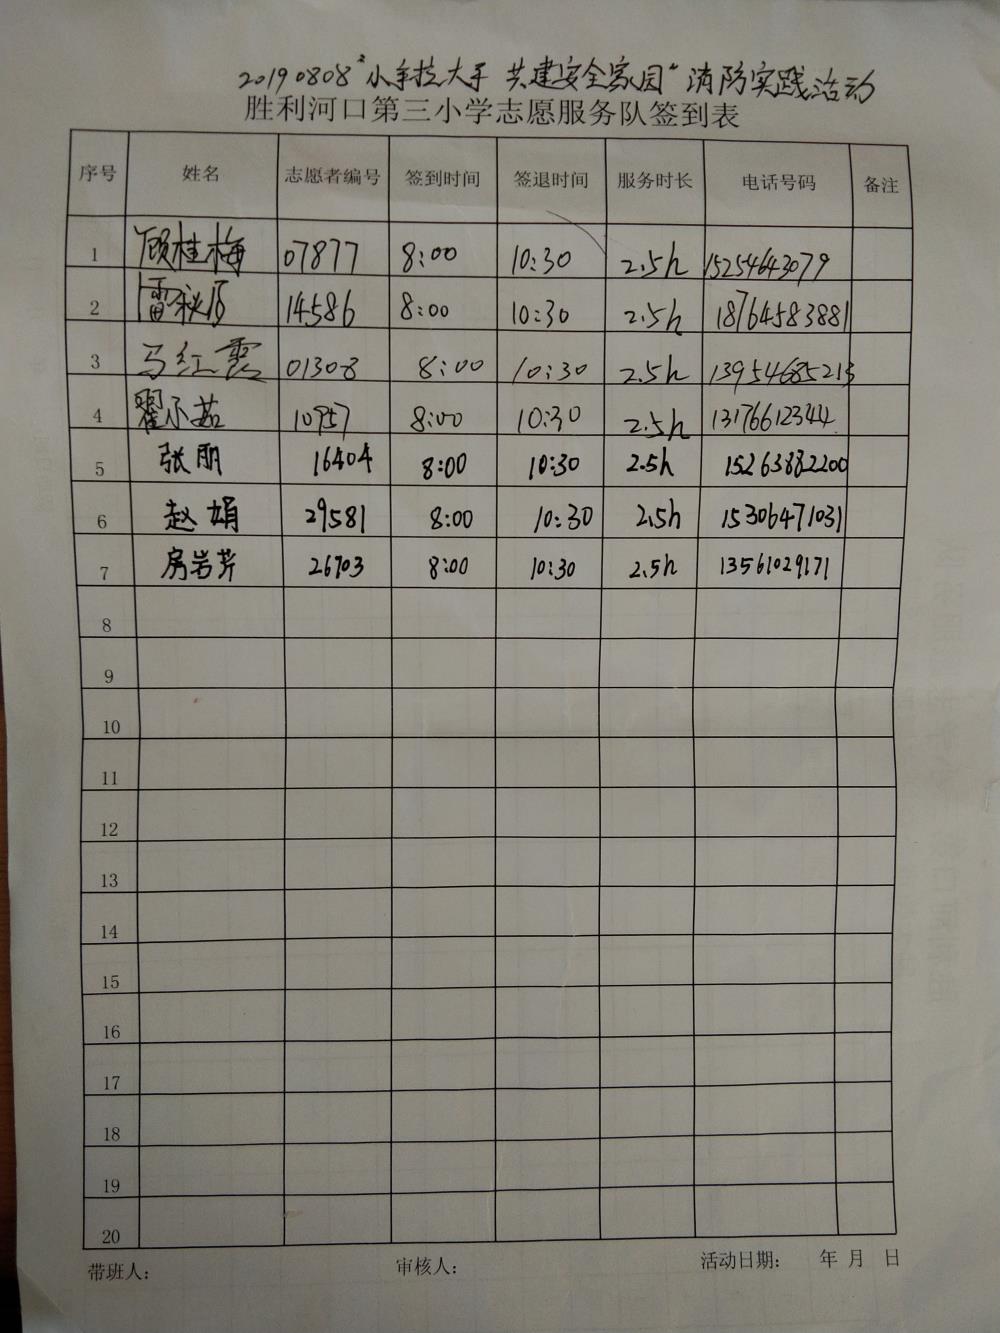 20190808“小手拉大手 共建安全家园”消防实践活动
胜利河口第三小学志愿服务队签到表
序号 姓名 志愿者编号 签到时间 签退时间 服务时长 电话号码 备注
1 顾桂梅 07877 8:00 10:30 2.5h 15254643079
2 14586 8:00 10:30 2.5h 18764583881
3 马红霞 01308 8:00 10:30 2.5h 13954685213
4 10957 8:00 10:30 2.5h 13176612344
5 张丽 16404 8:00 10:30 2.5h 15263882200
6 赵娟 29581 8:00 10:30 2.5h 15306471031
7 房岩芹 26703 8:00 10:30 2.5h 13561029171
8
9
10
11
12
13
14
15
16
17
18
19
20
带班人： 审核人： 活动日期： 年 月 日